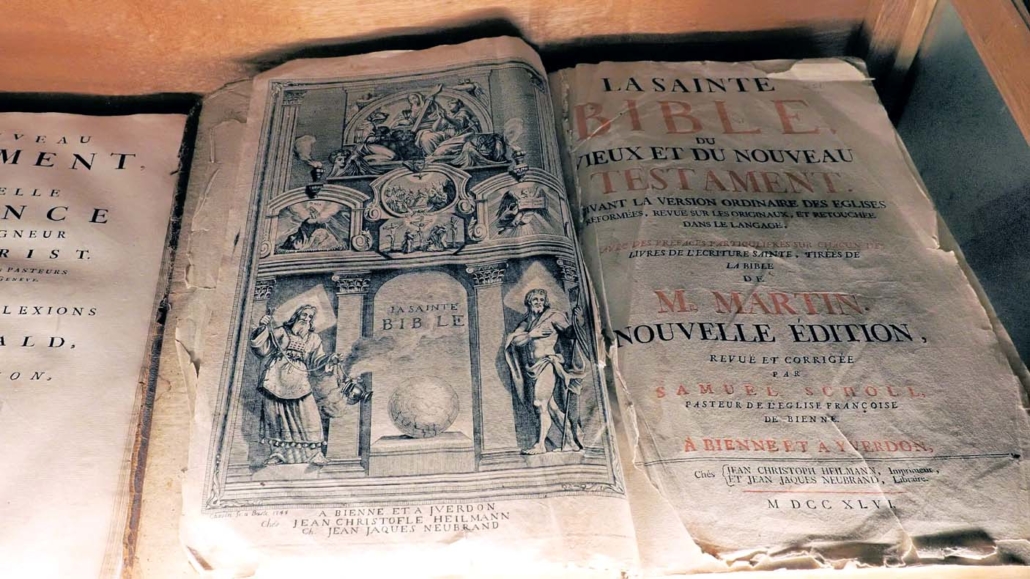 VEAU
MENT,
ELLE
NCE
GNEUR
RIST.
PASTEURS
GENEVE.
LEXIONS
ALD,
ON,
LA SAINTE
BIBLE
A BIENNE ET A JVERDON
Chés JEAN CHRISTOFLE HEILMANN
JEAN JAQUES NEUBRAND
LA SAINTE
BIBLE,
DU
VIEUX ET DU NOUVEAU
TESTAMENT.
VANT LA VERSION ORDINAIRE DES EGLISES
REFORMÉES, REVUE SUR LES ORIGINAUX, ET RETOUCHÉE
DANS LE LANGAGE,
DES PREFACES PARTICULIERES SUR CHACUN DES
LIVRES DE L'ECRITURE SAINTE, TIRÉES DE
LA BIBLE
DE
M. MARTIN.
NOUVELLE ÉDITION,
REVUE ET CORRIGÉE
PAR
SAMUEL SCHOLL,
PASTEUR DE L'EGLISE FRANÇOISE
DE BIENNE.
À BIENNE ET A YVERDON,
Chés JEAN CHRISTOPH HEILMANN, Imprimeur,
ET JEAN JAQUES NEUBRAND, Libraire.
M DCC XLVI.